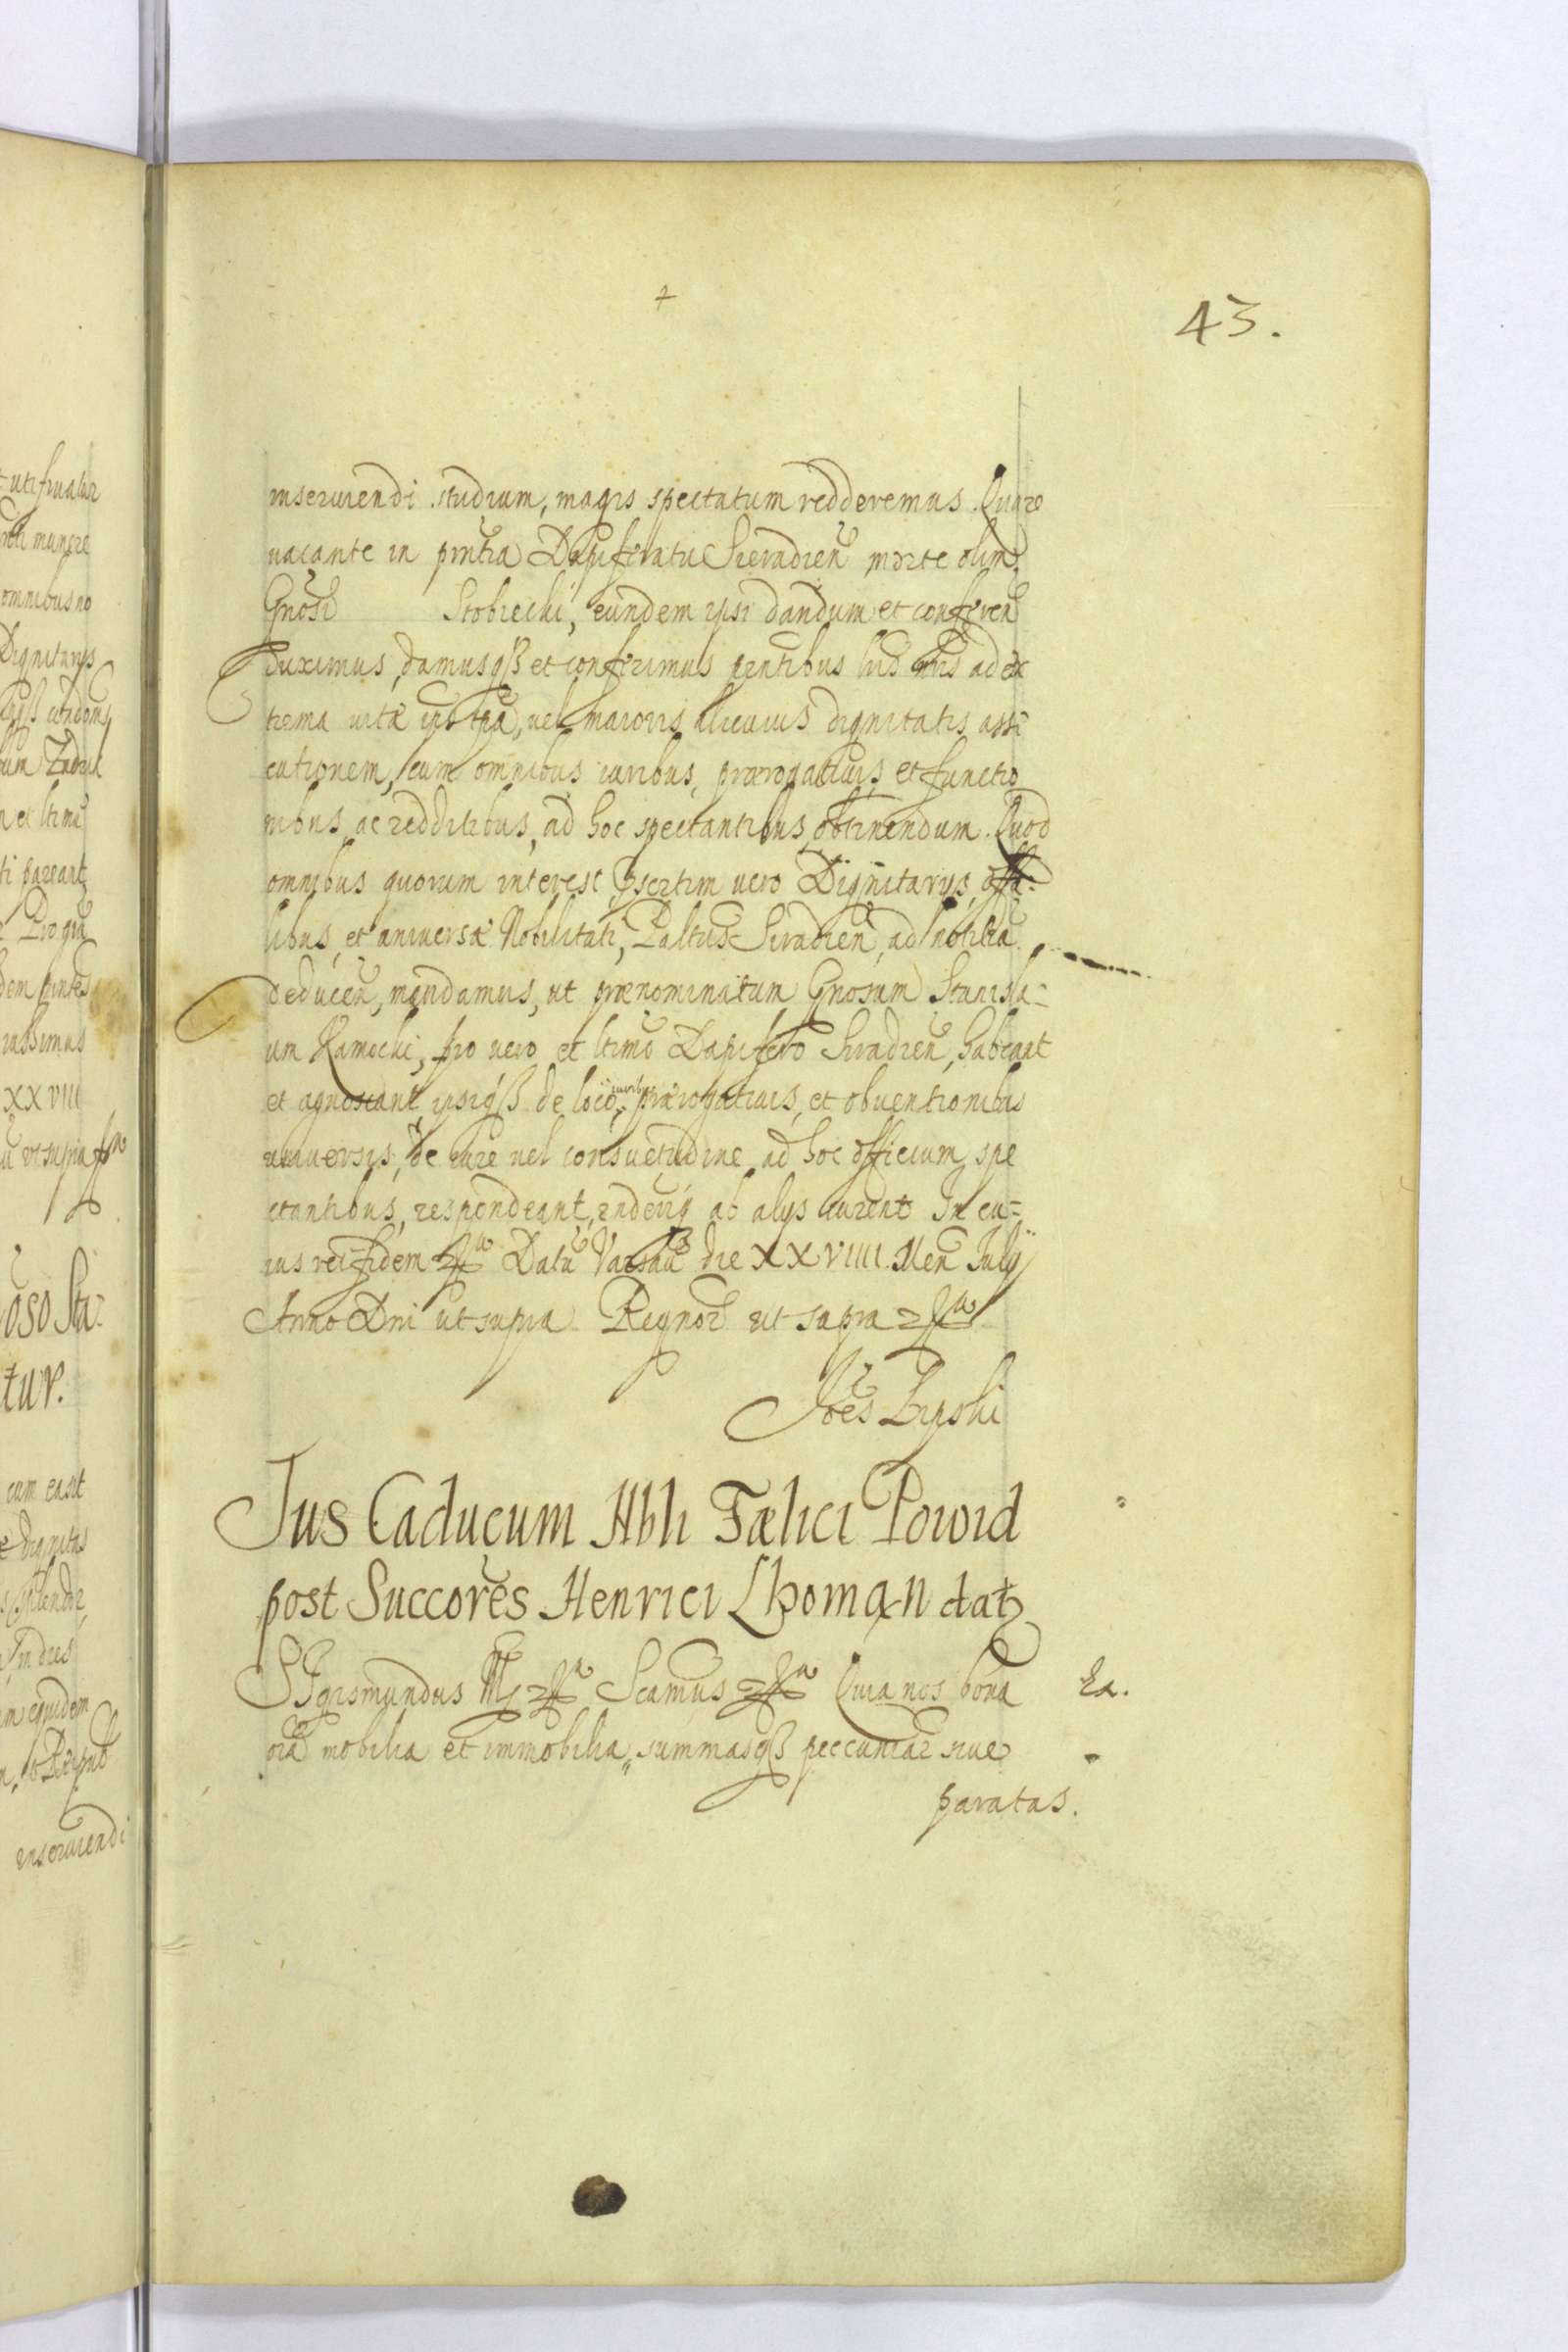 43.
inseruiendi studium, magis spectatum redderemus. Quare
uacante in pntia Dapiferatu Sieradien morte olim
Gnosi Stobiecki, eundem ipsi dandum et conferen
duximus, damusqß et conferimus pentibus hisce ad ex
trema uitæ ipsius tpa, uel maioris alicuius dignitatis asse
cutionem, cum omnibus iuribus, prærogatiuis et functio
nibus ac redditibus, ad hoc spectantibus obtinendum. Quod
omnibus quorum interest, psertim uero Dignitarijs, offa
libus, et uniuersæ Nobilitati, Paltus Siradien, ad notitia
deducen, mandamus, ut prænominatum Gnosum Stanisla=
um Kamocki, pro uero et ltimo Dapifero Siradien, habeant
et agnoscant, ipsiqß de loco, iuribus prærogatiuis, et obuentionibus
uniuersis, de iure uel consuetudine ad hoc officium spe
ctantibus, respondeant, ab alijs curent In cu=
ius rei fidem Datu Varsau die XXVIIII. Men Julij
Anno Dni ut supra Regnor ut supra
Joes Lipski
Jus Caducum Nbli Fælici Powid
post Succores Henrici Lhoman dat
SIgismundus Scamus Quia nos bona
oia mobilia et immobilia, summasqß peccuniar siue
paratas.